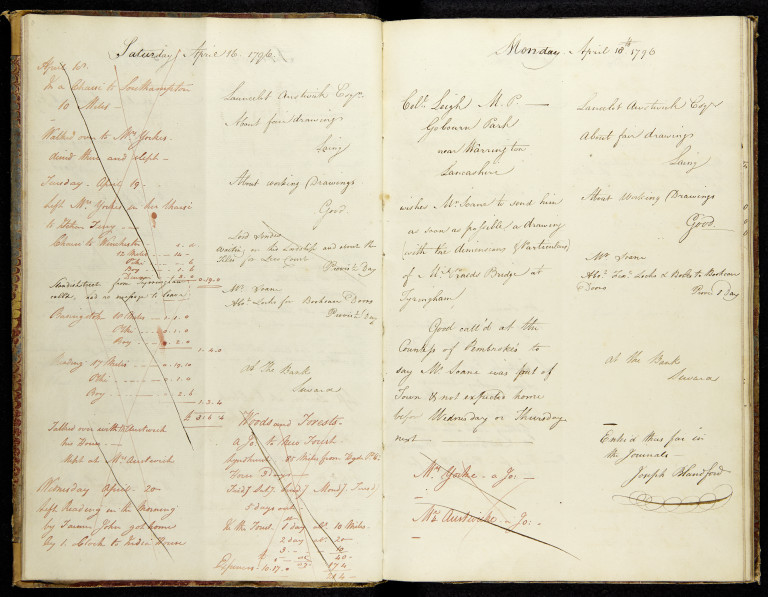 Saturday April 16. 1796.
April 18.
In a Chaise to Southampton
10 Miles —
Walked over to Mrs Yorkes —
dined there and slept —
Tuesday April 19 —
Left Mrs Yorkes in her Chaise
to Ferry —
Chaise to Winchester
12 Miles — 14 —
Ptke
Boy 1. 6
from Tyringham
called, had no message to leave
Basingstoke 18 Miles —
Ptke — 1. 0
Boy — 2. 0
1. 4. 0
Reading 17 Miles — 19. 10
Ptke — 1. 0
Boy — 2. 6
1. 3. 4
Talked over with Mr Austwick
his House —
Slept at Mr Austwick
Wednesday April 20 —
Left Reading in the Morning
by
by 1. Clock to India House
Lancelot Austwick Esqr.
About fair drawings
Laing
About working Drawings
Good.
Provis 1/2 Day
Mr Soane
Abt. Locks for Bookcase Doors
Provis 1/2 Day
At the Bank
Seward
Woods and Forests —
a Jo: to New Forest
Lyndhurst 85 Miles from Hyde Pk Cr.
5 days out —
In the Forest 1st day abt. 10 Miles —
2 day abt. 20 —
3 — 10
40 —
174
Expences — 10. 17. 0
Monday April 18th 1796
Coll. Leigh M. P. —
Gobourn Park
near Warrington
Lancashire
wishes Mr. Soane to send him
as soon as possible a drawing
(with the dimensions & Particulars)
of Mr. Praeds Bridge at
Tyringham
Good call'd at the
Countess of Pembroke's to
day Mr Soane was out of
Town & not expected home
before Wednesday or Thursday
next —
Mrs Yorke — a Jo: —
Mr. Austwicke — Jo: —
Lancelot Austwick Esqr
About fair drawings
Laing
About working Drawings
Good
Mr Soane
Abt. Locks & Bolts to Bookcase
Doors
Provis 1/2 Day
At the Bank
Seward
Enter'd thus far in
the Journals —
Joseph Blandford